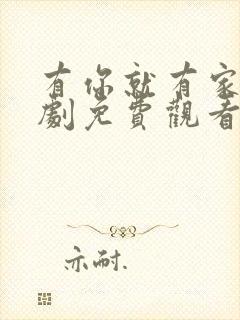 有你就有家
劇免費觀看
亦耐.